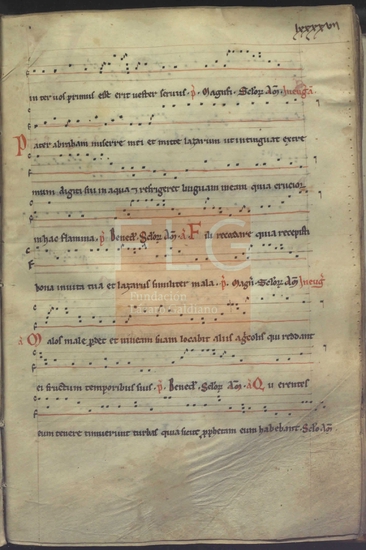 lxxxxvii
inter vos primus esse erit vester servus · p · Magnif · Selor Am · In eugª
Pater abraham miserere mei et mitte lazarum ut intinguat extre
mum digiti sui in aqua et refrigeret linguam meam quia crucior
in hac flamma · p · Bened · Selor Am · a Fili recordare quia recepisti
bona in vita tua et lazarus similiter mala · p · Magn · Selor Am In eugª
FLG
Fundación
a Malos male perdet et vineam suam locabit aliis agcolis qui reddant
ei fructum temporibus suis · p · Bened · Selor Am · a Querentes
eum tenere timuerunt turbas quia sicut pphetam eum habebant · Selor Am